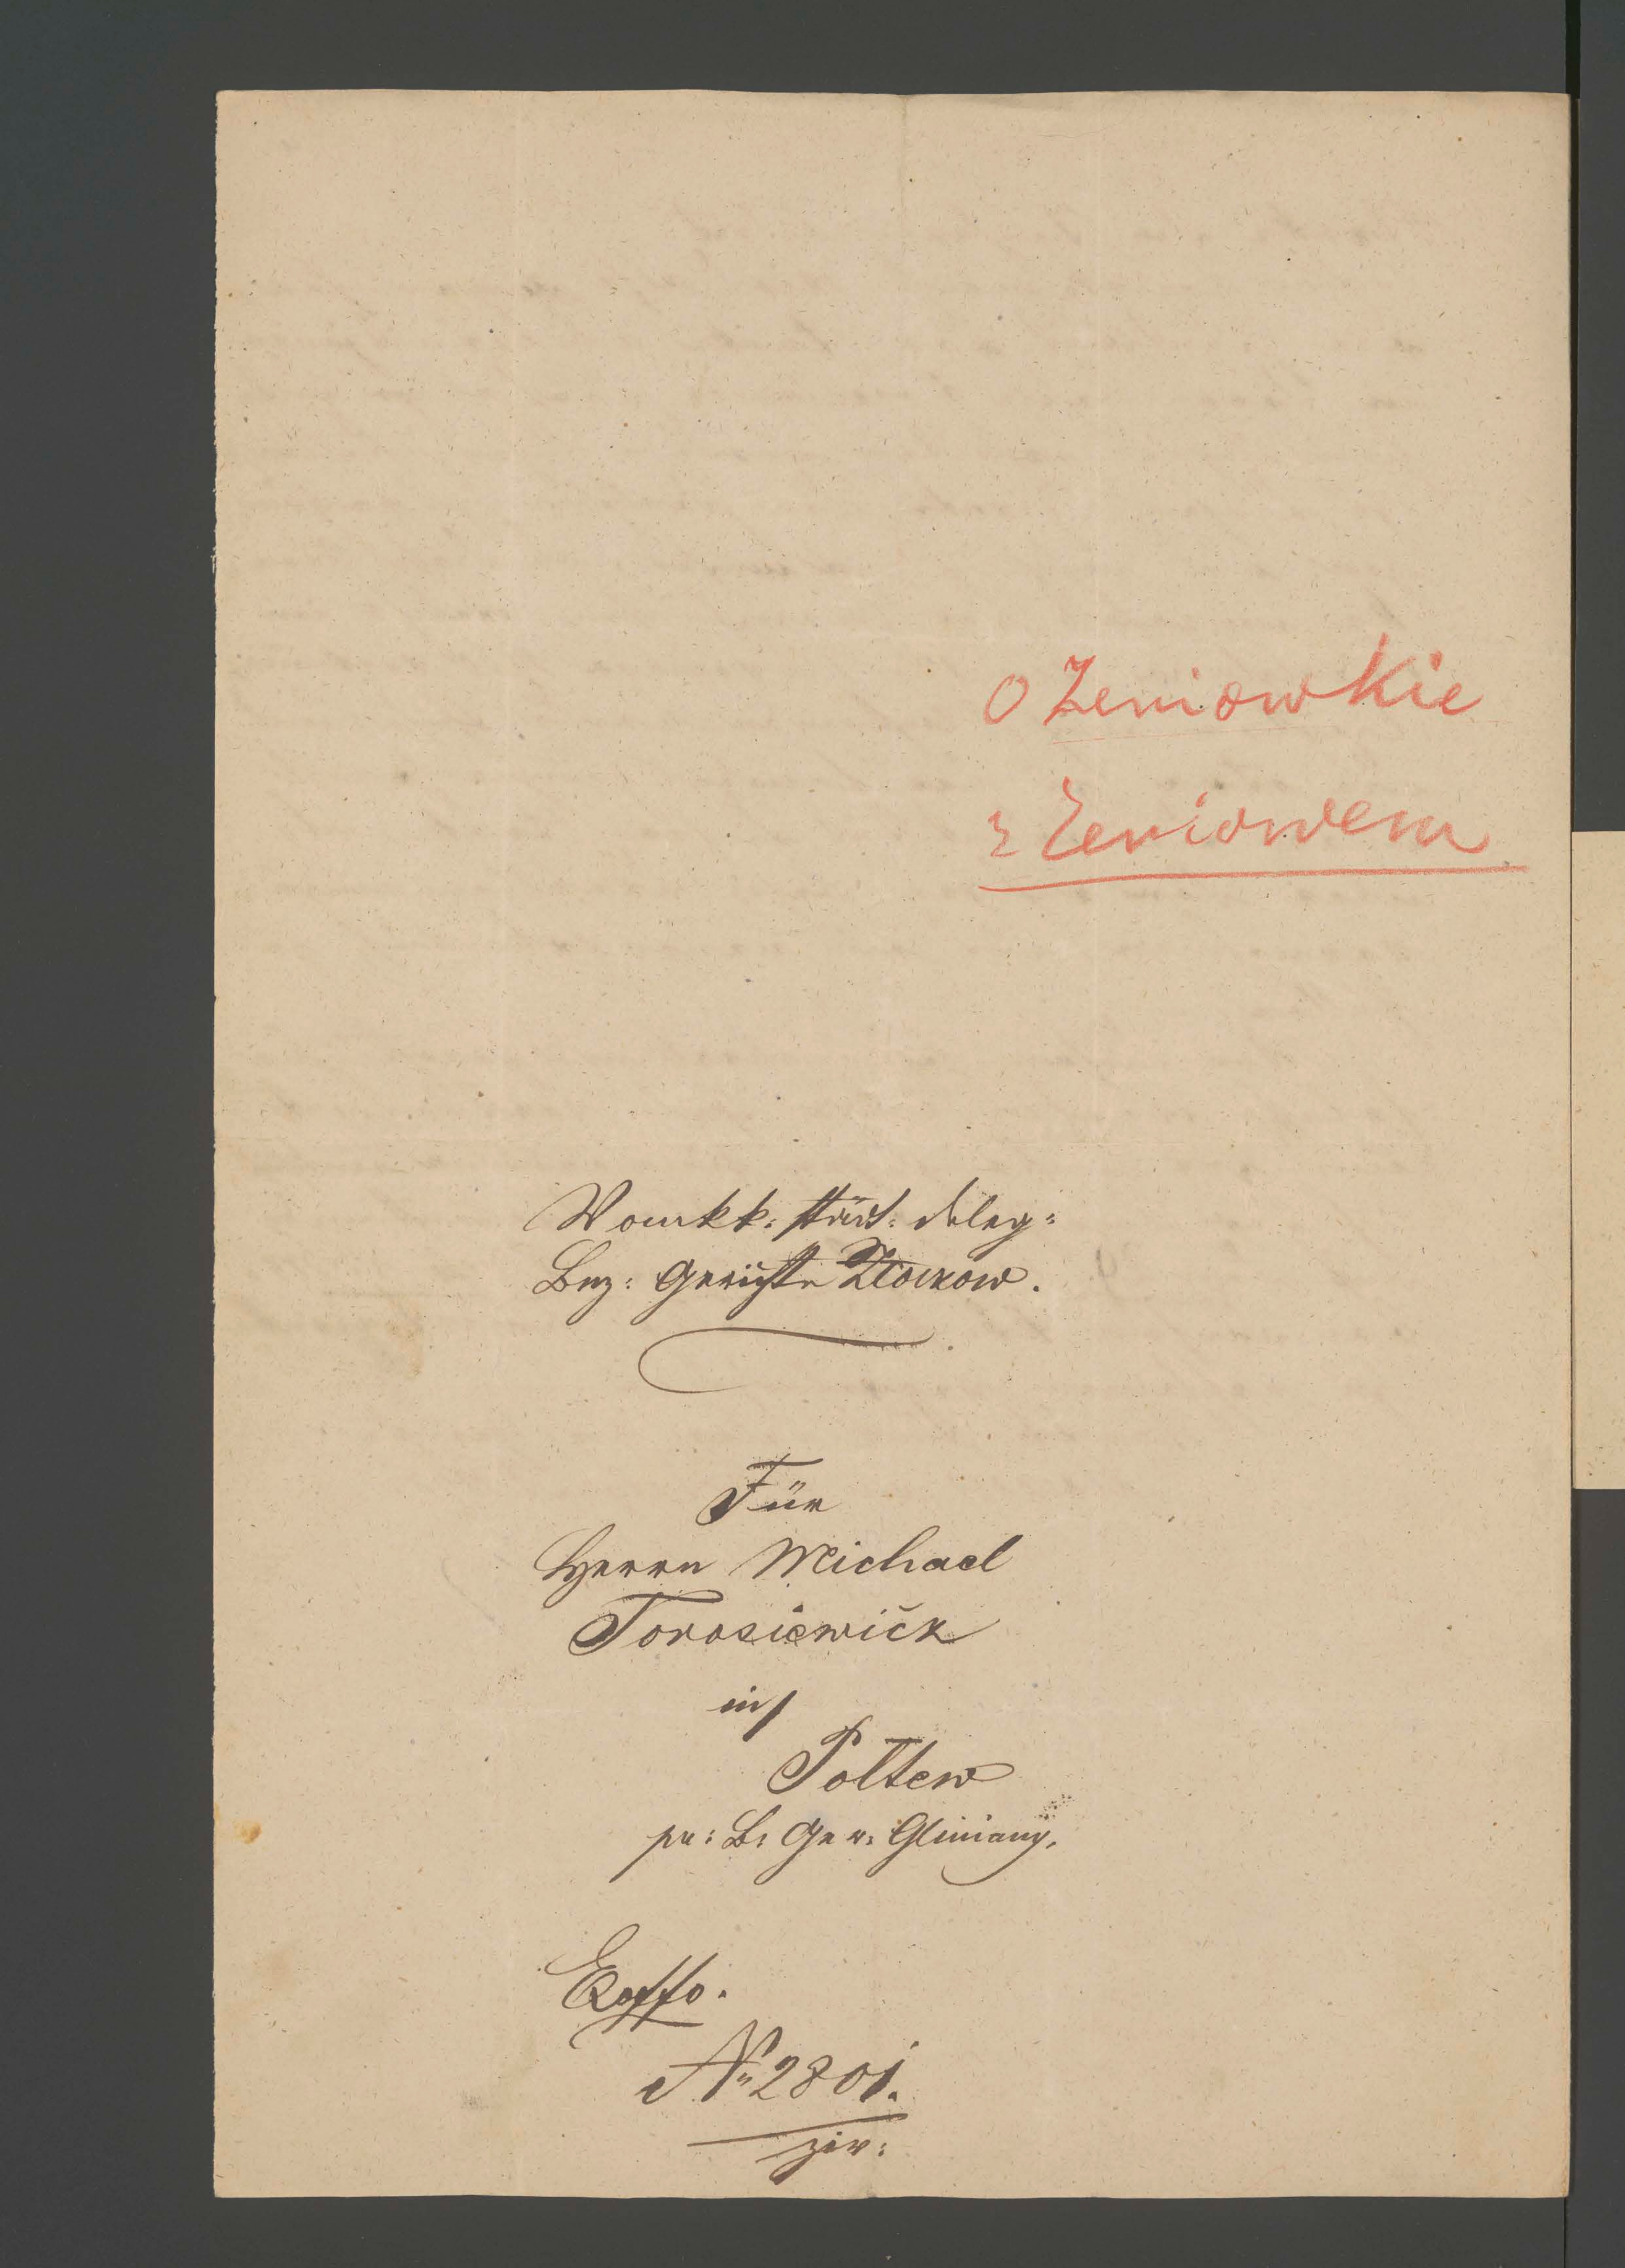 O Zeniowkie
z Zeniowem
Vom kk: städt: deleg:
Bez: Gerichte Złoczow.
Für
Herrn Michael
Torosiewicz
in
Połtew
pr: Bz Ger: Gliniany.
Exoffo.
No 2801.
ziv: